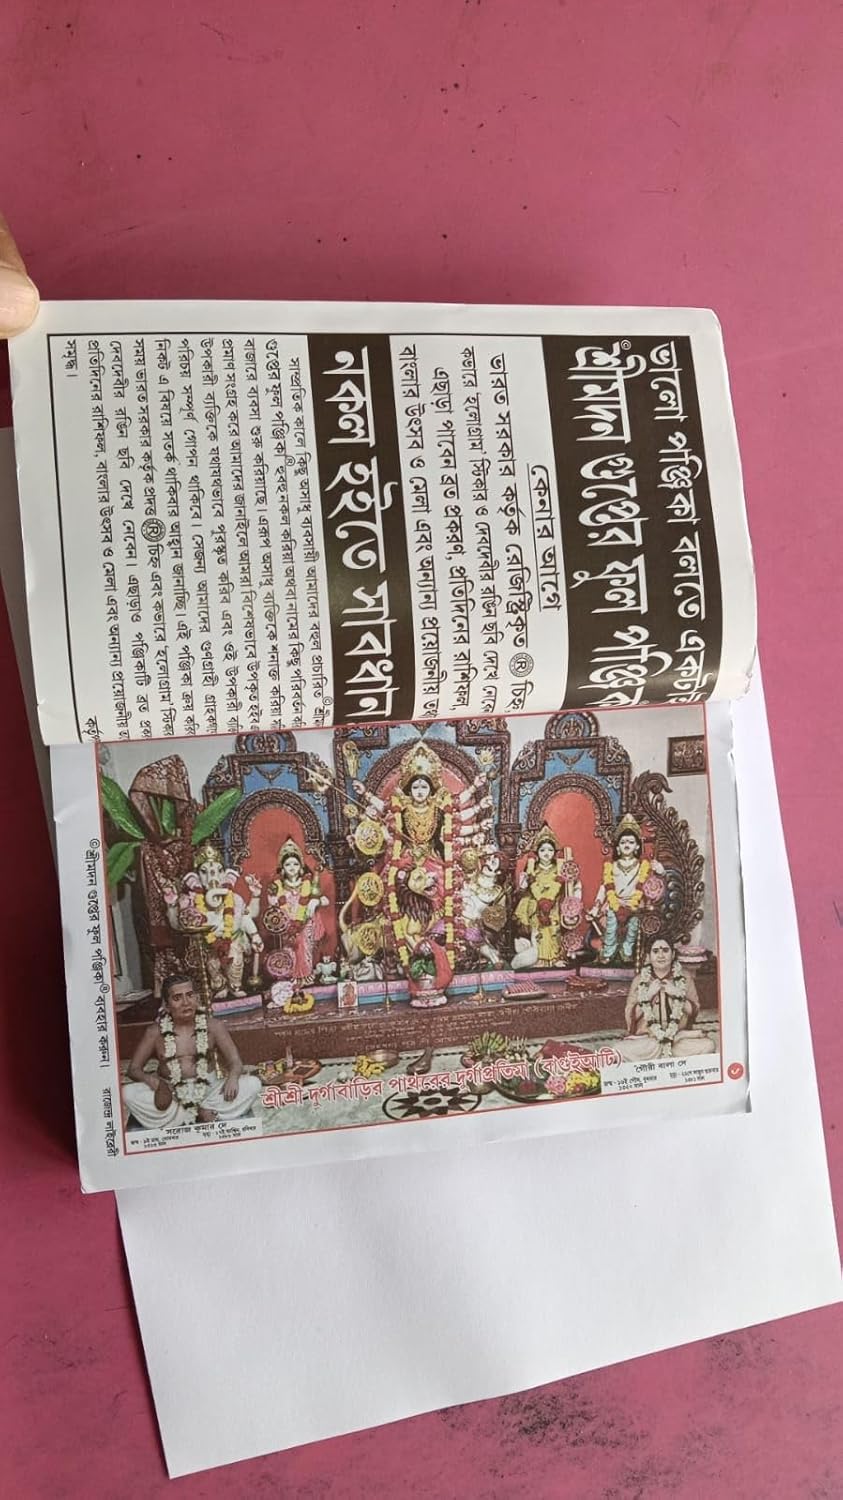 ভালো পঞ্জিকা বলতে একটাই
©শ্রীমদন গুপ্তের ফুল পঞ্জিকা
কেনার আগে
ভারত সরকার কর্তৃক রেজিস্ট্রিকৃত ® চিহ্ন,
কভারে হলোগ্রাম স্টিকার ও দেবদেবীর রঙিন ছবি দেখে নেবেন
এছাড়া পাবেন ব্রত প্রকরণ, প্রতিদিনের রাশিফল,
বাংলার উৎসব ও মেলা এবং অন্যান্য প্রয়োজনীয় তথ্য
নকল হইতে সাবধান
সাম্প্রতিক কালে কিছু অসাধু ব্যবসায়ী আমাদের বহুল প্রচারিত ©শ্রীমদন
গুপ্তের ফুল পঞ্জিকা® হুবহু নকল করিয়া অথবা নামের কিছু পরিবর্তন করিয়া
বাজারে ব্যবসা শুরু করিয়াছে। এরূপ অসাধু ব্যক্তিকে শনাক্ত করিয়া
প্রমাণ সংগ্রহ করে আমাদের জানাইলে আমরা বিশেষভাবে উপকৃত হইব
উপকারী ব্যক্তিকে যথাযথভাবে পুরস্কৃত করিব এবং ওই উপকারী ব্যক্তির
পরিচয় সম্পূর্ণ গোপন থাকিবে। সেজন্য আমাদের শুভার্থী গ্রাহকগণের
নিকট এ বিষয়ে সতর্ক থাকিবার আহ্বান জানাচ্ছি। এই পঞ্জিকা ক্রয় করিবার
সময় ভারত সরকার কর্তৃক প্রদত্ত ® চিহ্ন এবং কভারে হলোগ্রাম স্টিকার
দেবদেবীর রঙিন ছবি দেখে নেবেন। এছাড়াও পঞ্জিকাটি ব্রত প্রকরণ
প্রতিদিনের রাশিফল, বাংলার উৎসব ও মেলা এবং অন্যান্য প্রয়োজনীয়
সমৃদ্ধ।
শ্রীশ্রী দুর্গাবাড়ির পাথরের দুর্গাপ্রতিমা (বাগুইআটি)
সরোজ কুমার দে
গৌরী বালা দে
১
©শ্রীমদন গুপ্তের ফুল পঞ্জিকা® ব্যবহার করুন।
রাজেন্দ্র লাইব্রেরী